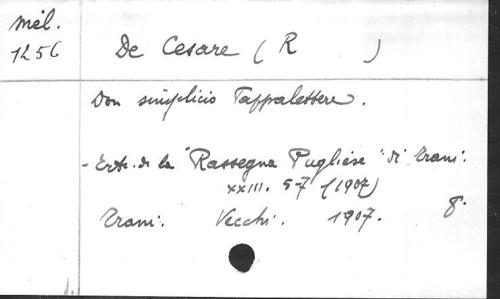 Mél.
1256
De Cesare ( R )
Don simplicio Tappalettere.
- Extr. de la "Rassegna Pugliese" di Trani.
XXIII. 5-7 (1907)
Trani. Vecchi. 1907. 8.